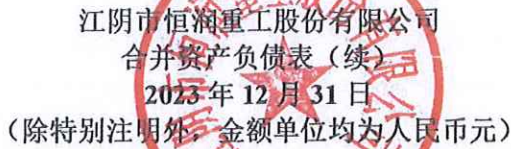 江阴市恒润重工股份有限公司
合并资产负债表（续）
2023 年 12 月 31 日
（除特别注明外，金额单位均为人民币元）